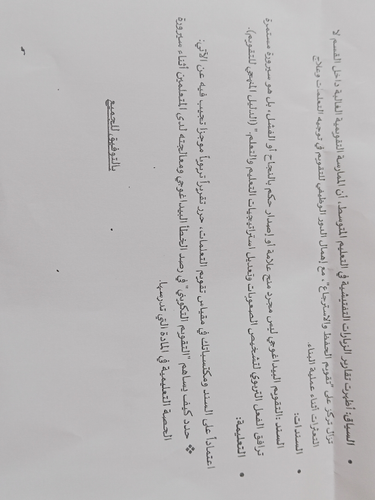 • السياق: أظهرت تقارير الزيارات التفتيشية في التعليم المتوسط، أن الممارسة التقويمية الغالبة داخل القسم لا
تزال تركز على "تقويم الحفظ والاسترجاع"، مع إهمال الدور الوظيفي للتقويم في توجيه التعلمات وعلاج
التعثرات أثناء عملية البناء.
• السندات:
السند: التقويم البيداغوجي ليس مجرد منح علامة أو إصدار حكم بالنجاح أو الفشل، بل هو سيرورة مستمرة
ترافق الفعل التربوي لتشخيص الصعوبات وتعديل استراتيجيات التعليم والتعلم." (الدليل المنهجي للتقويم).
• التعليمة:
اعتماداً على السند ومكتسباتك في مقياس تقويم التعلمات، حرر تقريراً تربوياً موجزا تجيب فيه عن الآتي:
❖ حدد كيف يساهم "التقويم التكويني" في رصد الخطأ البيداغوجي ومعالجته لدى المتعلمين أثناء سيرورة
الحصة التعليمية في المادة التي تدرسها.
بالتوفيق للجميع